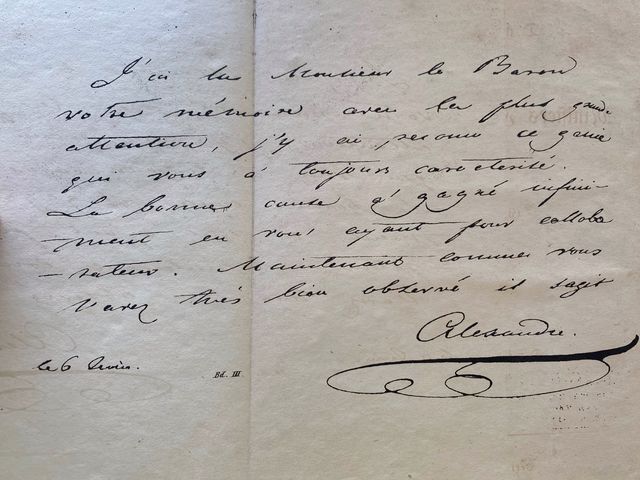 J'ai lu Monsieur le Baron
votre mémoire avec la plus grande
attention, j'y ai reconnu ce genie
qui vous à toujours caracterisé.
La bonne cause à gagné infini-
-ment en vous ayant pour collabo
-rateur. Maintenant comme vous
l'avez très bien observé il s'agit
Alexandre.
le 6
Bd. III.